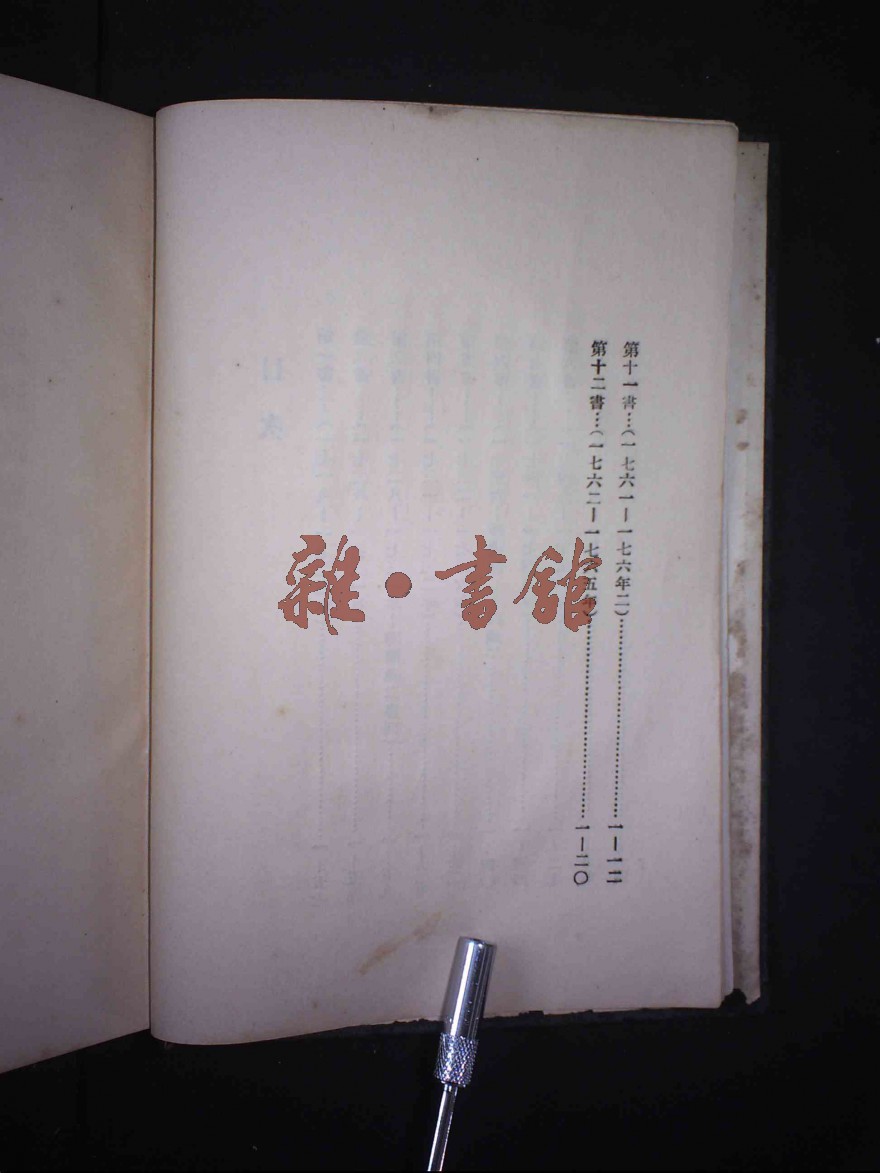 第十一書…(一七六一—一七六年二)……………………………一—一二
第十二書…(一七六二—一七六五年)……………………………一—二〇
雜·書館